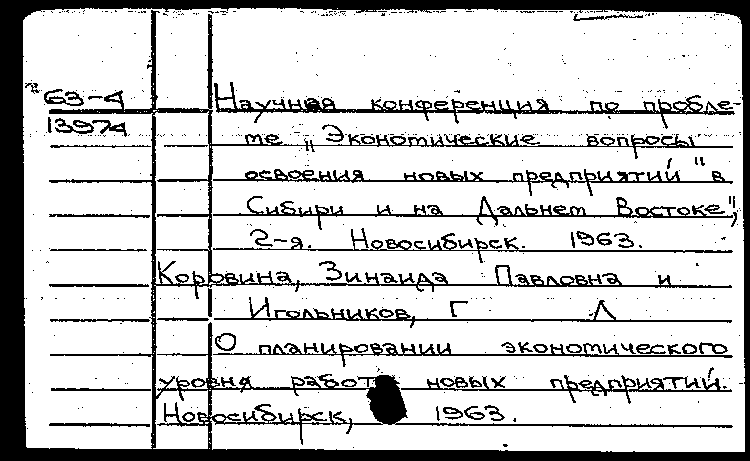 63-4
13974
Научная конференция по пробле-
ме "Экономические вопросы
освоения новых предприятий "в
Сибири и на Дальнем Востоке",
2-я. Новосибирск. 1963.
Коровина, Зинаида Павловна и
Игольников, Г Л
О планировании экономического
уровня работ новых предприятий.
Новосибирск, 1963.